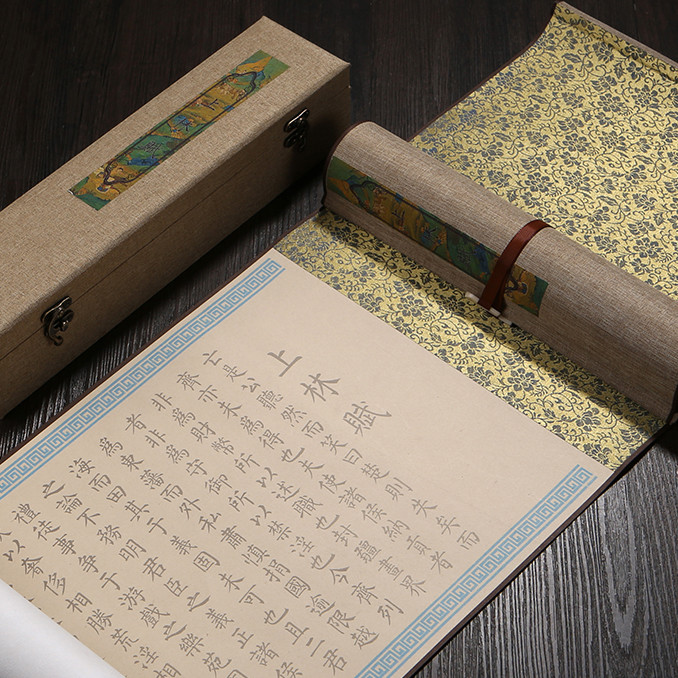 上林賦
亡是公聽然而笑曰楚則失矣而
齊亦未為得也夫使諸侯納貢者
非為財幣所以述職也封疆畫界
者非為守御所以禁淫也今齊列
為東藩而外私肅慎捐國逾限越
海而田其于義固未可也且二君
之論不務明君臣之義正諸侯
禮徒事爭于游戲之樂苑
以奢侈相勝荒淫相